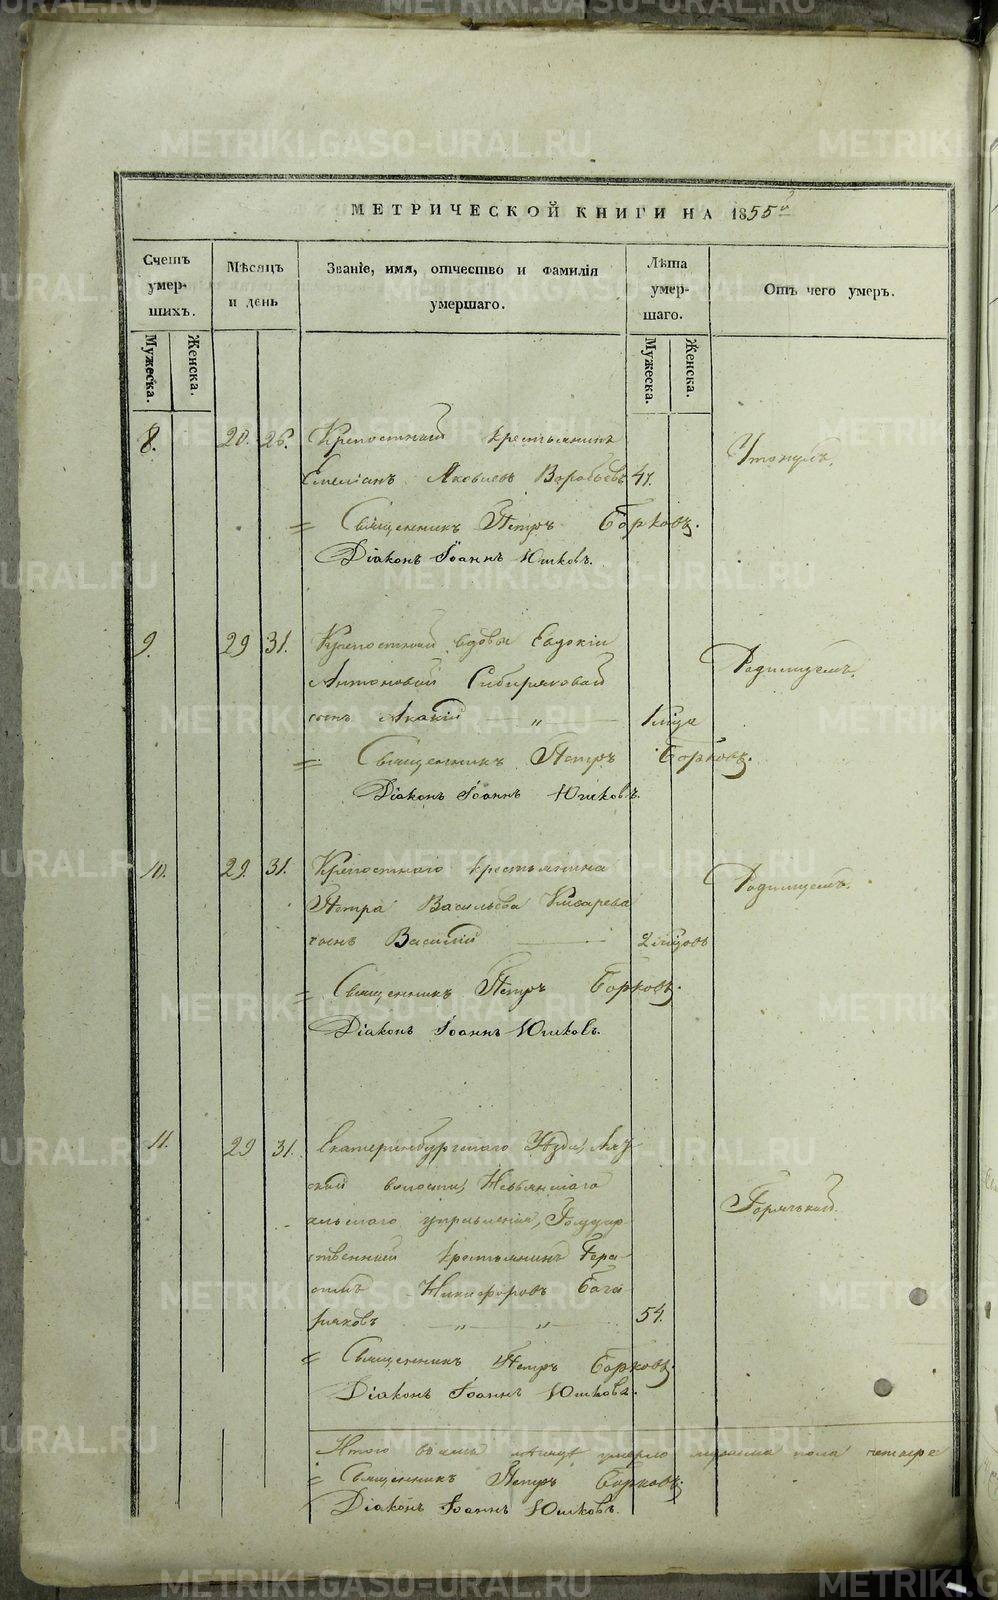 МЕТРИЧЕСКОЙ КНИГИ НА 1855й
Счетъ умер-шихъ.
Мѣсяцъ и день
Званіе, имя, отчество и фамилія умершаго.
Лѣта умер-шаго.
Отъ чего умеръ.
Мужеска.
Женска.
Мужеска.
Женска.
8. 20. 26. Крепостный крестьянинъ
Емеліанъ Яковлевъ Воробьевъ 41. Утонулъ.
= Священникъ Петръ Борковъ.
Діаконъ Іоаннъ Юшковъ.
9. 29 31. Крепостной вдовы Евдокіи
Антоновой Сибиряковой Родимцемъ.
сынъ Акакій — „ — 1 мца
= Священникъ Петръ Борковъ.
Діаконъ Іоаннъ Юшковъ.
10. 29. 31. Крепостнаго крестьянина
Петра Васильева Родимцемъ.
сынъ Василій — 2 мцовъ
= Священникъ Петръ Борковъ.
Діаконъ Іоаннъ Юшковъ.
11. 29 31. Екатеринбургскаго Уѣзда,
ской волости, Невьянскаго
льскаго управленія, Государ-
ственный крестьянинъ Гера- Горячькой.
симъ Никифоровъ Бага-
ряковъ — „ — „ 54.
= Священникъ Петръ Борковъ.
Діаконъ Іоаннъ Юшковъ.
Итого въ семъ мѣсяцѣ умерло мужеска пола четыре
= Священникъ Петръ Борковъ.
Діаконъ Іоаннъ Юшковъ.
METRIKI.GASO-URAL.RU